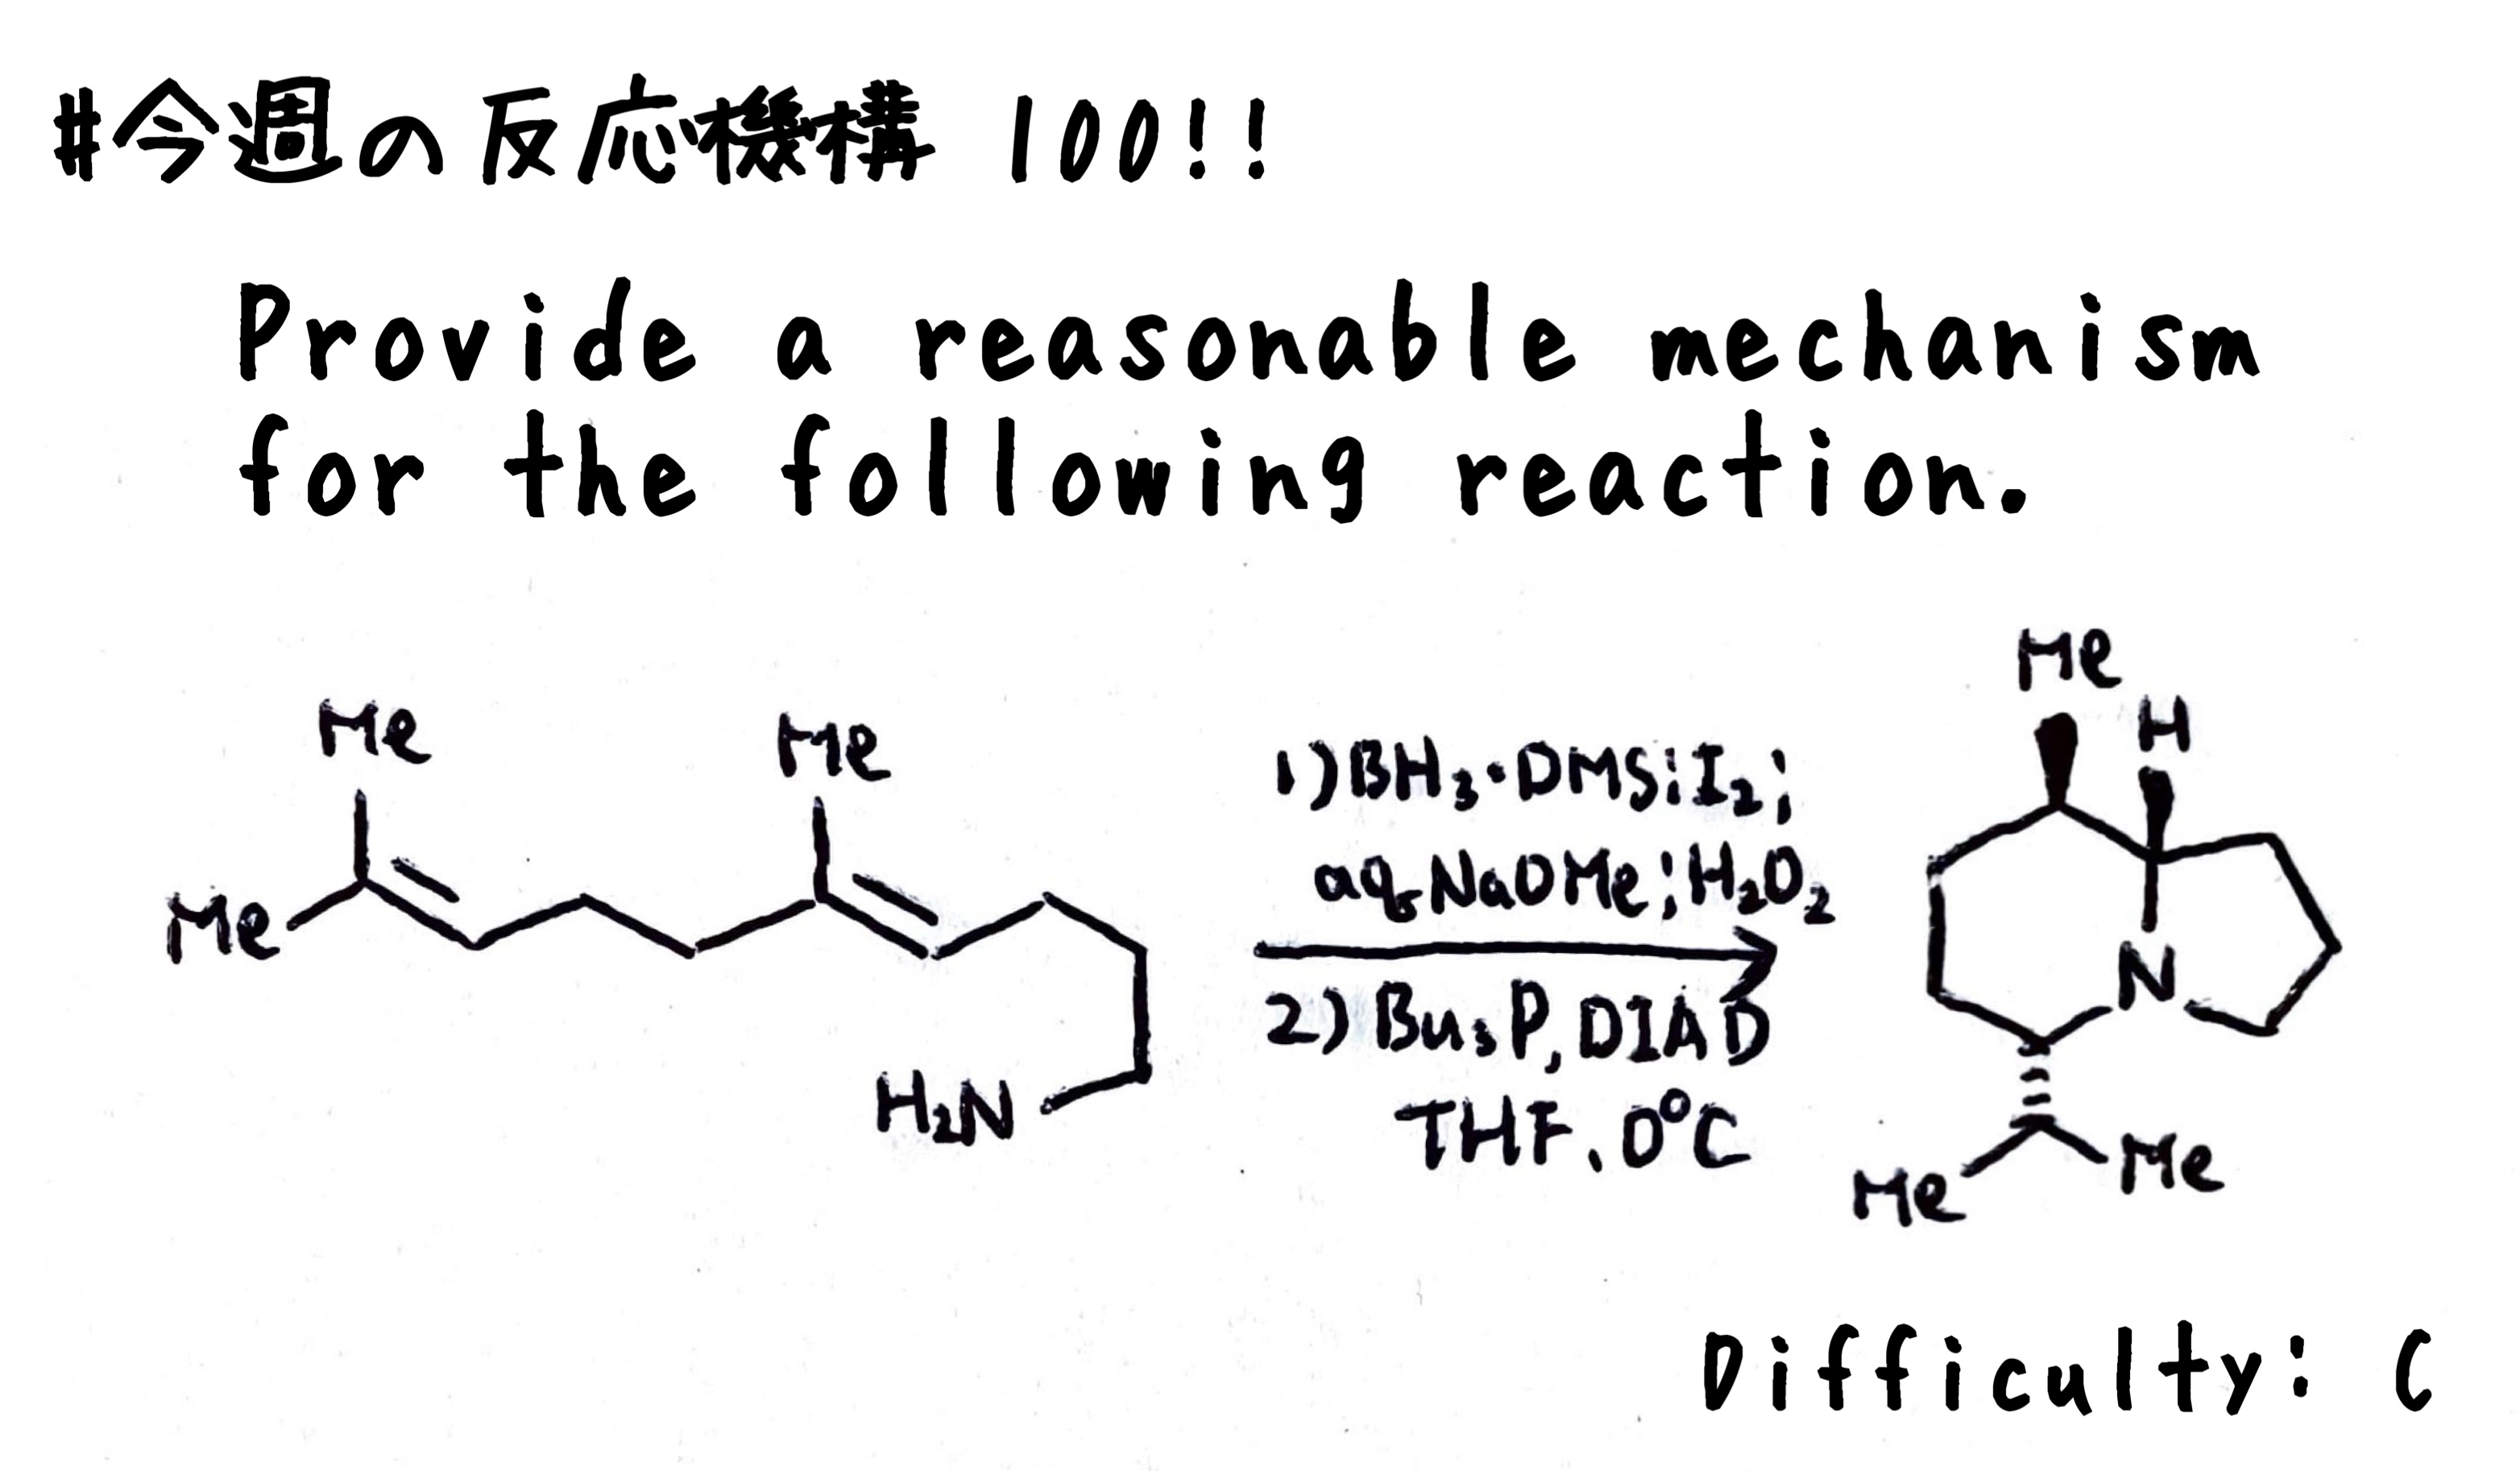 #今週の反応機構 100!!
Provide a reasonable mechanism
for the following reaction.
Me
Me
Me
H₂N
1) BH₃・DMSiI₂;
aq NaOMe; H₂O₂
2) Bu₃P, DIAD
THF, 0°C
Me
H
N
Me
Me
Difficulty: C